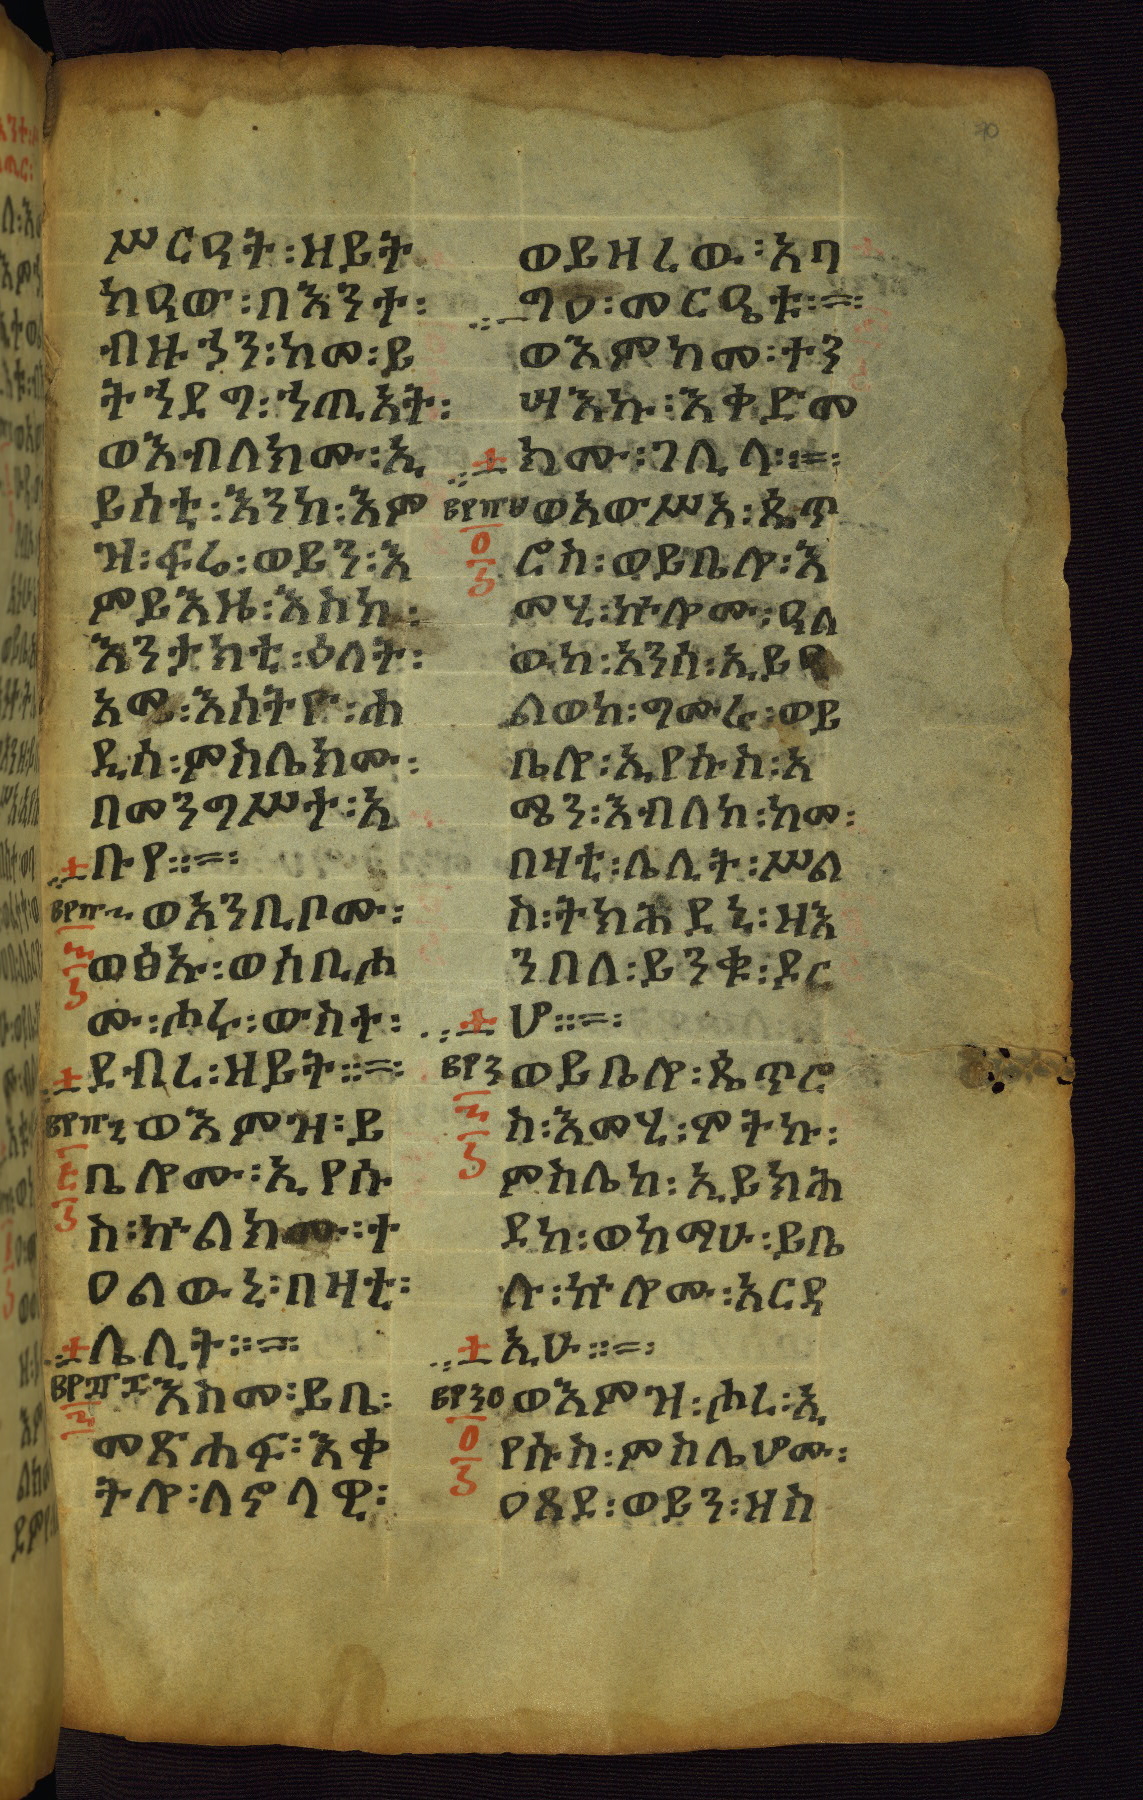 ሥርዓት፡ዘይት
ከዓው፡በእንተ፡
ብዙኃን፡ከመ፡ይ
ትኀደግ፡ኀጢአት፡
ወእብለክሙ፡ኢ
ይሰቲ፡እንከ፡እም
ዝ፡ፍሬ፡ወይን፡እ
ምይእዜ፡እስከ፡
እንታክቲ፡ዕለት፡
አመ፡እሰትዮ፡ሐ
ዲሰ፡ምስሌክሙ፡
በመንግሥተ፡አ
ቡየ።=፡
ወአንቢቦሙ፡
ወፅኡ፡ወሰቢሖ
ሙ፡ሖሩ፡ውስተ፡
ደብረ፡ዘይት።=፡
ወእምዝ፡ይ
ቤሎሙ፡ኢየሱ
ስ፡ኵልክሙ፡ት
ዐልውኒ፡በዛቲ፡
ሌሊት።=፡
እስመ፡ይቤ፡
መጽሐፍ፡እቀ
ትሎ፡ለኖላዊ፡
ወይዘረው፡አባ
ግዐ፡መርዔቱ።=፡
ወእምከመ፡ተን
ሣእኩ፡እቀድመ
ክሙ፡ገሊላ።=፡
ወአውሥአ፡ጴጥ
ሮስ፡ወይቤሎ፡እ
መሂ፡ኵሎሙ፡ዓለ
ውከ፡አንሰ፡ኢይዓ
ልወከ፡ግሙራ፡ወይ
ቤሎ፡ኢየሱስ፡አ
ሜን፡እብለከ፡ከመ፡
በዛቲ፡ሌሊት፡ሥል
ሰ፡ትክሕደኒ፡ዘእ
ንበለ፡ይንቁ፡ዶር
ሆ።=፡
ወይቤሎ፡ጴጥሮ
ስ፡እመሂ፡ሞትኩ፡
ምስሌከ፡ኢይክሕ
ደከ፡ወከማሁ፡ይቤ
ሉ፡ኵሎሙ፡አርዳ
ኢሁ።=፡
ወእምዝ፡ሖረ፡ኢ
የሱስ፡ምስሌሆሙ፡
ዐጸደ፡ወይን፡ዘስ